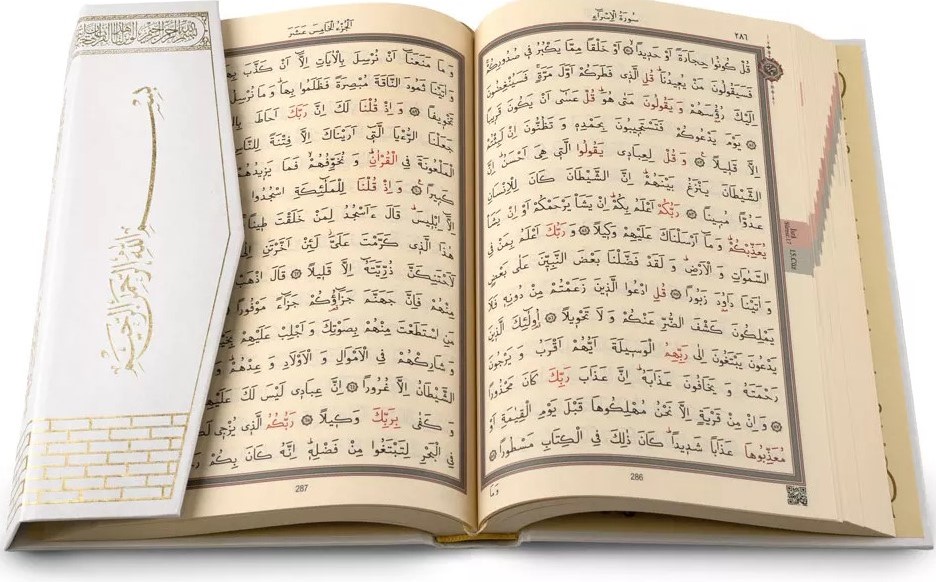 سُورَةُ الْاِسْرَاءِ
٢٨٦
قُلْ كُونُوا حِجَارَةً اَوْ حَدِيدًا ۞ اَوْ خَلْقًا مِمَّا يَكْبُرُ فِي صُدُورِكُمْ
فَسَيَقُولُونَ مَنْ يُعِيدُنَا قُلِ الَّذِي فَطَرَكُمْ اَوَّلَ مَرَّةٍ فَسَيُنْغِضُونَ
اِلَيْكَ رُؤُسَهُمْ وَ يَقُولُونَ مَتٰى هُوَ قُلْ عَسٰى اَنْ يَكُونَ قَرِيبًا
۞ يَوْمَ يَدْعُوكُمْ فَتَسْتَجِيبُونَ بِحَمْدِهِ وَ تَظُنُّونَ اِنْ لَبِثْتُمْ
اِلَّا قَلِيلًا ۞ وَ قُلْ لِعِبَادِي يَقُولُوا الَّتِي هِيَ اَحْسَنُ اِنَّ
الشَّيْطَانَ يَنْزَغُ بَيْنَهُمْ اِنَّ الشَّيْطَانَ كَانَ لِلْاِنْسَانِ
عَدُوًّا مُبِينًا ۞ رَبُّكُمْ اَعْلَمُ بِكُمْ اِنْ يَشَأْ يَرْحَمْكُمْ اَوْ اِنْ يَشَأْ
يُعَذِّبْكُمْ وَ مَا اَرْسَلْنَاكَ عَلَيْهِمْ وَكِيلًا ۞ وَ رَبُّكَ اَعْلَمُ بِمَنْ فِي
السَّمٰوَاتِ وَ الْاَرْضِ وَ لَقَدْ فَضَّلْنَا بَعْضَ النَّبِيِّنَ عَلٰى بَعْضٍ
وَ اٰتَيْنَا دَاوُدَ زَبُورًا ۞ قُلِ ادْعُوا الَّذِينَ زَعَمْتُمْ مِنْ دُونِهِ فَلَا
يَمْلِكُونَ كَشْفَ الضُّرِّ عَنْكُمْ وَ لَا تَحْوِيلًا ۞ اُولٰئِكَ الَّذِينَ
يَدْعُونَ يَبْتَغُونَ اِلٰى رَبِّهِمُ الْوَسِيلَةَ اَيُّهُمْ اَقْرَبُ وَ يَرْجُونَ
رَحْمَتَهُ وَ يَخَافُونَ عَذَابَهُ اِنَّ عَذَابَ رَبِّكَ كَانَ مَحْذُورًا
۞ وَ اِنْ مِنْ قَرْيَةٍ اِلَّا نَحْنُ مُهْلِكُوهَا قَبْلَ يَوْمِ الْقِيٰمَةِ اَوْ
مُعَذِّبُوهَا عَذَابًا شَدِيدًا كَانَ ذٰلِكَ فِي الْكِتَابِ مَسْطُورًا ۞
وَمَا
286
اَلْجُزْءُ الْخَامِسَ عَشَرَ
وَ مَا مَنَعَنَا اَنْ نُرْسِلَ بِالْاٰيَاتِ اِلَّا اَنْ كَذَّبَ
وَ اٰتَيْنَا ثَمُودَ النَّاقَةَ مُبْصِرَةً فَظَلَمُوا بِهَا وَ مَا نُرْسِلُ
تَخْوِيفًا ۞ وَ اِذْ قُلْنَا لَكَ اِنَّ رَبَّكَ اَحَاطَ
جَعَلْنَا الرُّءْيَا الَّتِي اَرَيْنَاكَ اِلَّا فِتْنَةً لِلنَّاسِ
الْمَلْعُونَةَ فِي الْقُرْاٰنِ وَ نُخَوِّفُهُمْ فَمَا يَزِيدُهُمْ
كَبِيرًا ۞ وَ اِذْ قُلْنَا لِلْمَلٰئِكَةِ اسْجُدُوا
اِلَّا اِبْلِيسَ قَالَ ءَاَسْجُدُ لِمَنْ خَلَقْتَ طِينًا
هٰذَا الَّذِي كَرَّمْتَ عَلَيَّ لَئِنْ اَخَّرْتَنِ اِلٰى
لَاَحْتَنِكَنَّ ذُرِّيَّتَهُ اِلَّا قَلِيلًا ۞ قَالَ اذْهَبْ
مِنْهُمْ فَاِنَّ جَهَنَّمَ جَزَاؤُكُمْ جَزَاءً مَوْفُورًا
مَنِ اسْتَطَعْتَ مِنْهُمْ بِصَوْتِكَ وَ اَجْلِبْ عَلَيْهِمْ
وَ شَارِكْهُمْ فِي الْاَمْوَالِ وَ الْاَوْلَادِ وَ عِدْهُمْ
الشَّيْطَانُ اِلَّا غُرُورًا ۞ اِنَّ عِبَادِي لَيْسَ لَكَ عَلَيْهِمْ
وَ كَفٰى بِرَبِّكَ وَكِيلًا ۞ رَبُّكُمُ الَّذِي يُزْجِي
فِي الْبَحْرِ لِتَبْتَغُوا مِنْ فَضْلِهِ اِنَّهُ كَانَ بِكُمْ
287
بسم الله الرحمن الرحيم